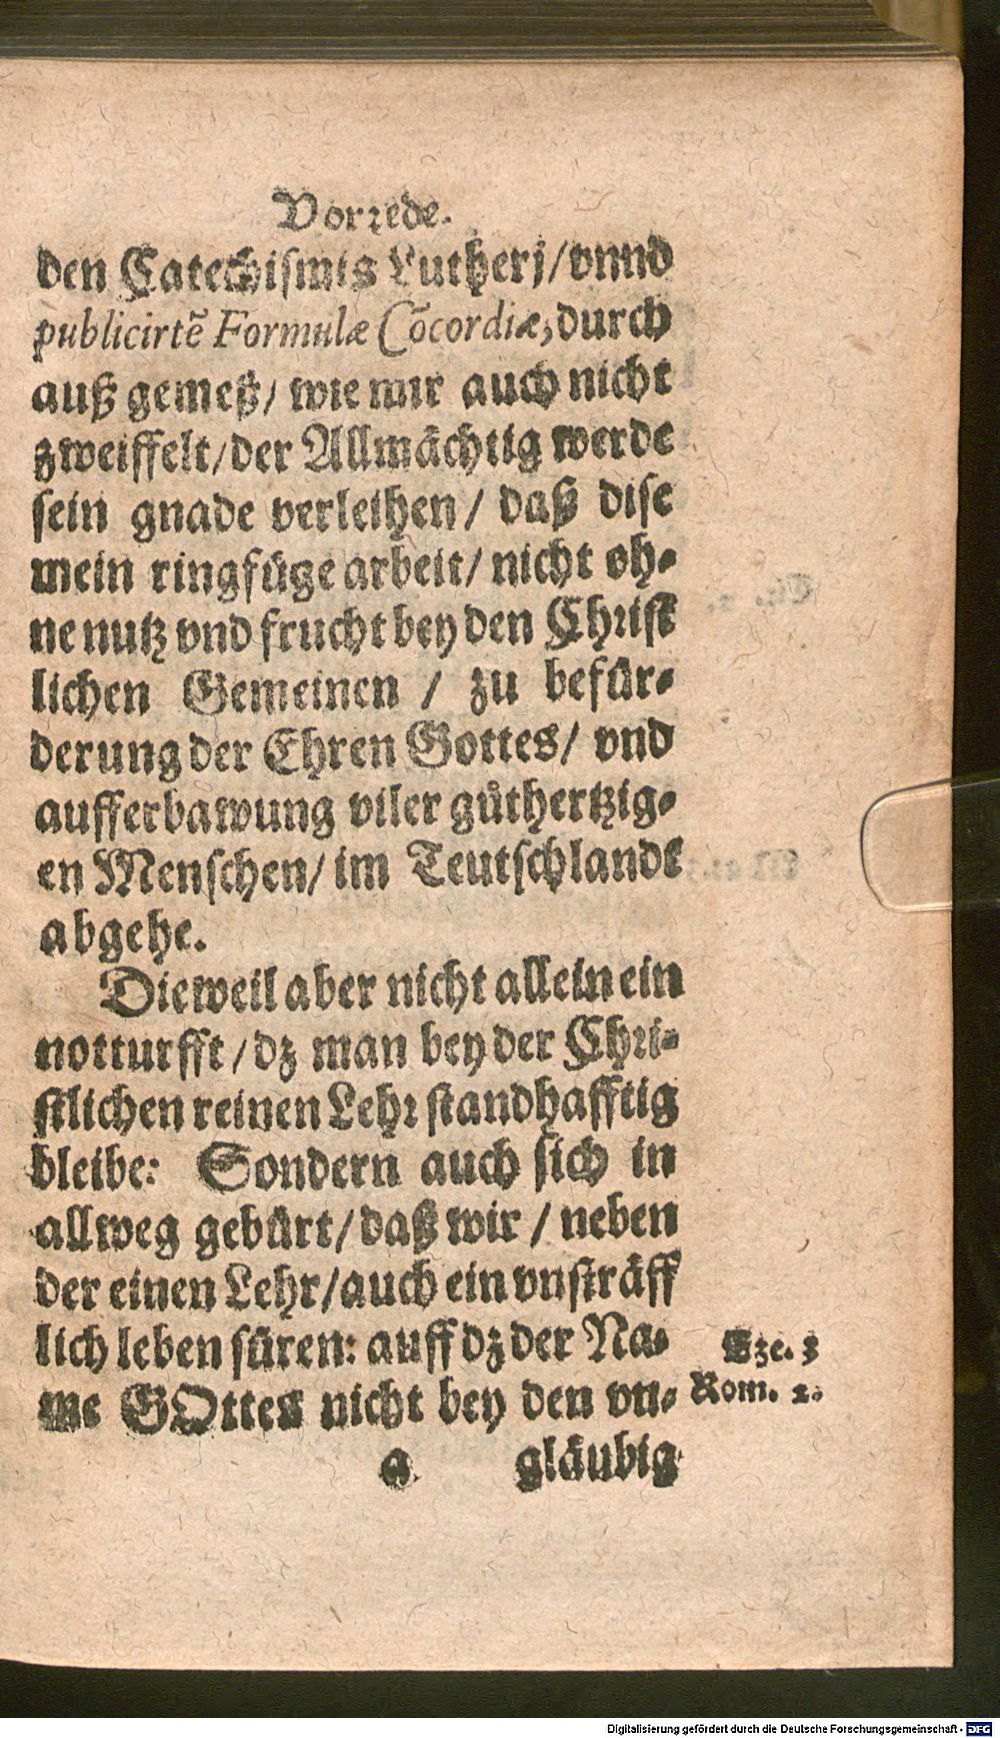 Vorrede.
den Catechismis Lutherj/vnnd
publicirtẽ Formulæ Cõcordiæ, durch
auß gemeß/ wie mir auch nicht
zweiffelt/der Allmächtig werde
sein gnade verleihen/ daß dise
mein ringfüge arbeit/ nicht oh-
ne nutz vnd frucht bey den Christ
lichen Gemeinen / zu befür-
derung der Ehren Gottes/ vnd
aufferbawung viler gůthertzig-
en Menschen/ im Teutschlande
abgehe.
Dieweil aber nicht allein ein
notturfft/dz man bey der Chri-
stlichen reinen Lehr standhafftig
bleibe: Sondern auch sich in
allweg gebürt/daß wir / neben
der einen Lehr/auch ein vnsträff
lich leben füren: auff dz der Na-
me GOttes nicht bey den vn-
Eze. 3
Rom. 2.
a gläubig
Digitalisierung gefördert durch die Deutsche Forschungsgemeinschaft - DFG